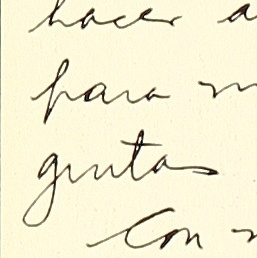 hacer a
para m
gentes
Con m